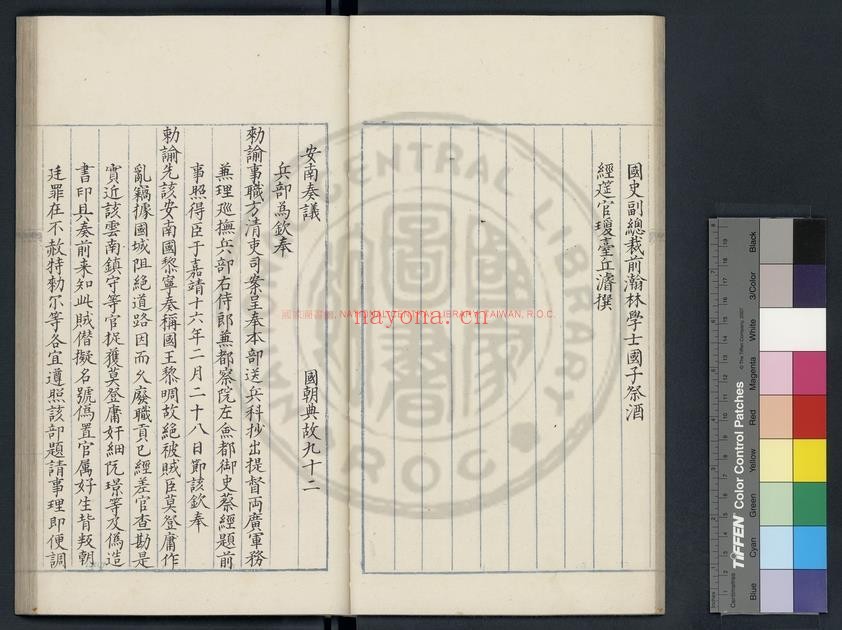 國史副總裁前瀚林學士國子祭酒
經筵官瓊臺丘濬撰
安南奏議
國朝典故九十二
兵部為欽奉
勑諭事職方清吏司案呈奉本部送兵科抄出提督両廣軍務
兼理廵撫兵部右侍郎兼都察院左僉都御史蔡經題前
事照得臣于嘉靖十六年二月二十八日節該欽奉
勑諭先該安南國黎寧奏稱國王黎晭故絶被賊臣莫登庸作
亂竊據國城阻絶道路因而乆廢職貢已經差官查勘是
實近該雲南鎮守等官捉獲莫登庸奸細阮璟等及偽造
書印具奏前来知此賊僣擬名號偽置官屬好生背叛朝
廷罪在不赦特勑尔等各宜遵照該部題請事理即便調
國家圖書館, NATIONAL CENTRAL LIBRARY, TAIWAN, R.O.C.
nayona.cn
NATIONAL CENTRAL LIBRARY
R.O.C.
國圖
書館
TIFFEN Color Control Patches
© The Tiffen Company, 2007
Centimetres
Inches
Blue
Cyan
Green
Yellow
Red
Magenta
White
3/Color
Black